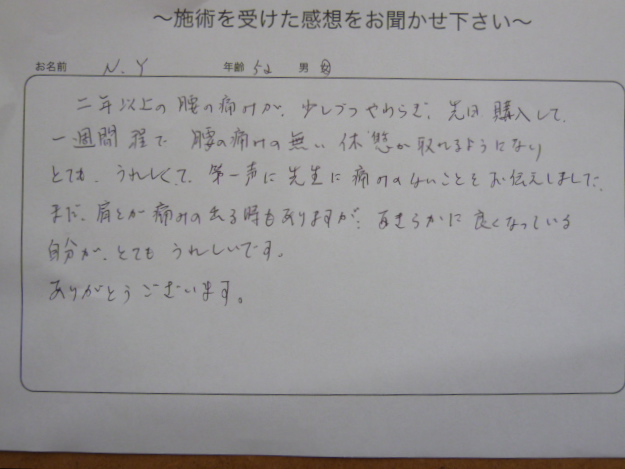 ～施術を受けた感想をお聞かせ下さい～
お名前 N.Y 年齢 52 男 女
二年以上の腰の痛みが、少しづつやわらぎ、先日購入して、
一週間程で腰の痛みの無い休態が取れるようになり
とても、うれしくて、第一声に先生に痛みのないことをお伝えしました。
まだ、肩とか痛みの出る時もありますが、あきらかに良くなっている
自分が、とてもうれしいです。
ありがとうございます。